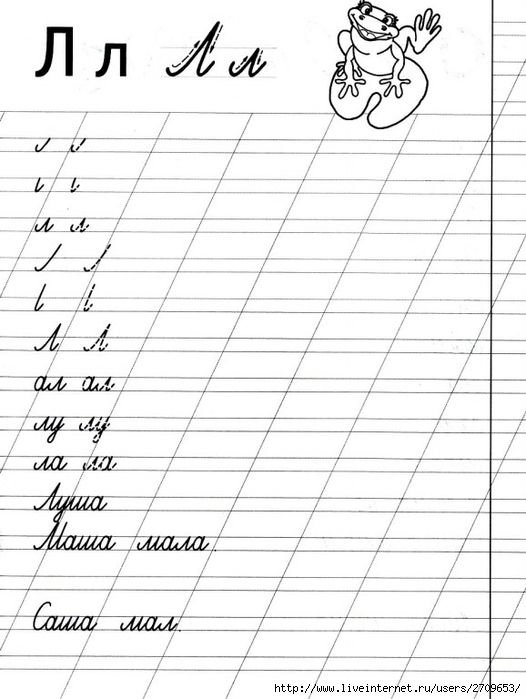 Л л Л л
л л
ал ал
лу лу
ла ла
Луша
Маша мала.
Саша мал.
http://www.liveinternet.ru/users/2709653/